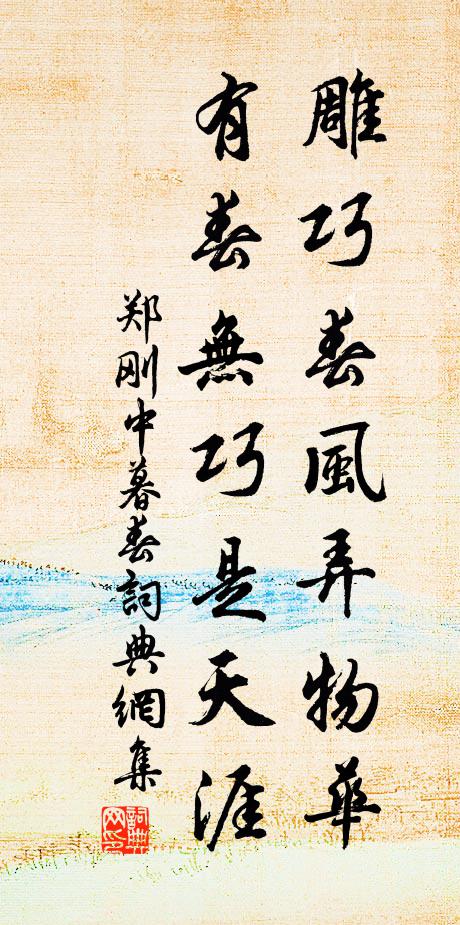 雕巧春風弄物華
有春無巧是天涯
郑刚中暮春詞典網集
詞典网印